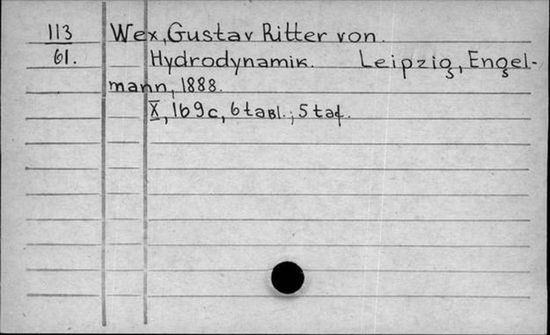 113 Wex, Gustav Ritter von.
61. Hydrodynamik. Leipzig, Engel-
mann, 1888.
X, 169c, 6 tabl.; 5 taf.